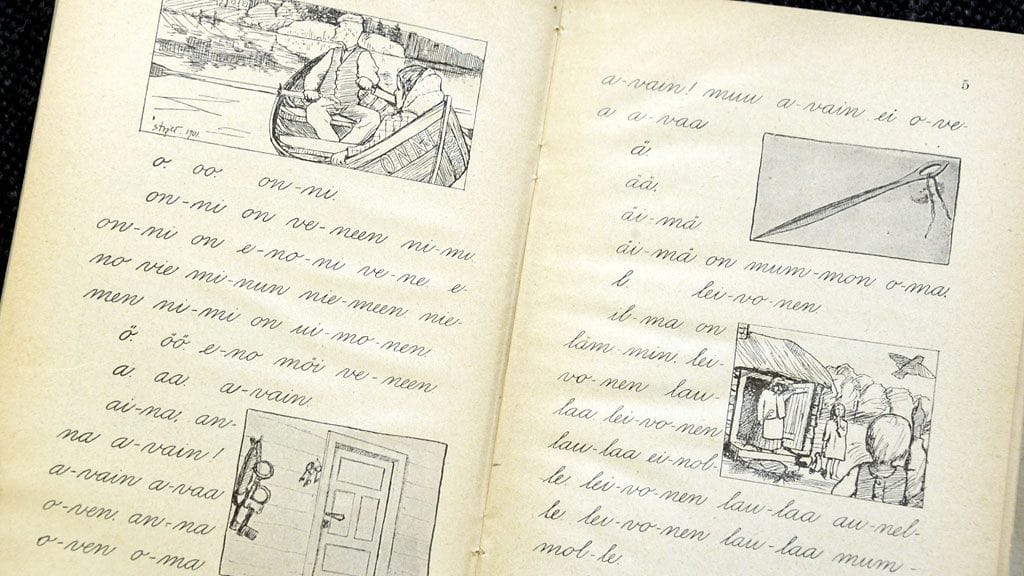 ONNI
o. oo. on-ni.
on-ni on ve-neen ni-mi.
on-ni on e-no-ni ve-ne. e-
no vie mi-nun nie-meen nie-
men ni-mi on ui-mo-nen.
ö. öö. e-no möi ve-neen
a. aa. a-vain.
ai-na, an-
na a-vain!
a-vain a-vaa
o-ven. an-na
o-ven o-ma
5
a-vain! muu a-vain ei o-ve-
a a-vaa
ä.
ää.
äi-mä
äi-mä on mum-mon o-ma.
l. lei-vo-nen.
il-ma on
läm-min. lei-
vo-nen lau-
laa lei-vo-nen
lau-laa ei-nol-
le. lei-vo-nen lau-laa au-nel-
le. lei-vo-nen lau-laa mum-
mol-le.